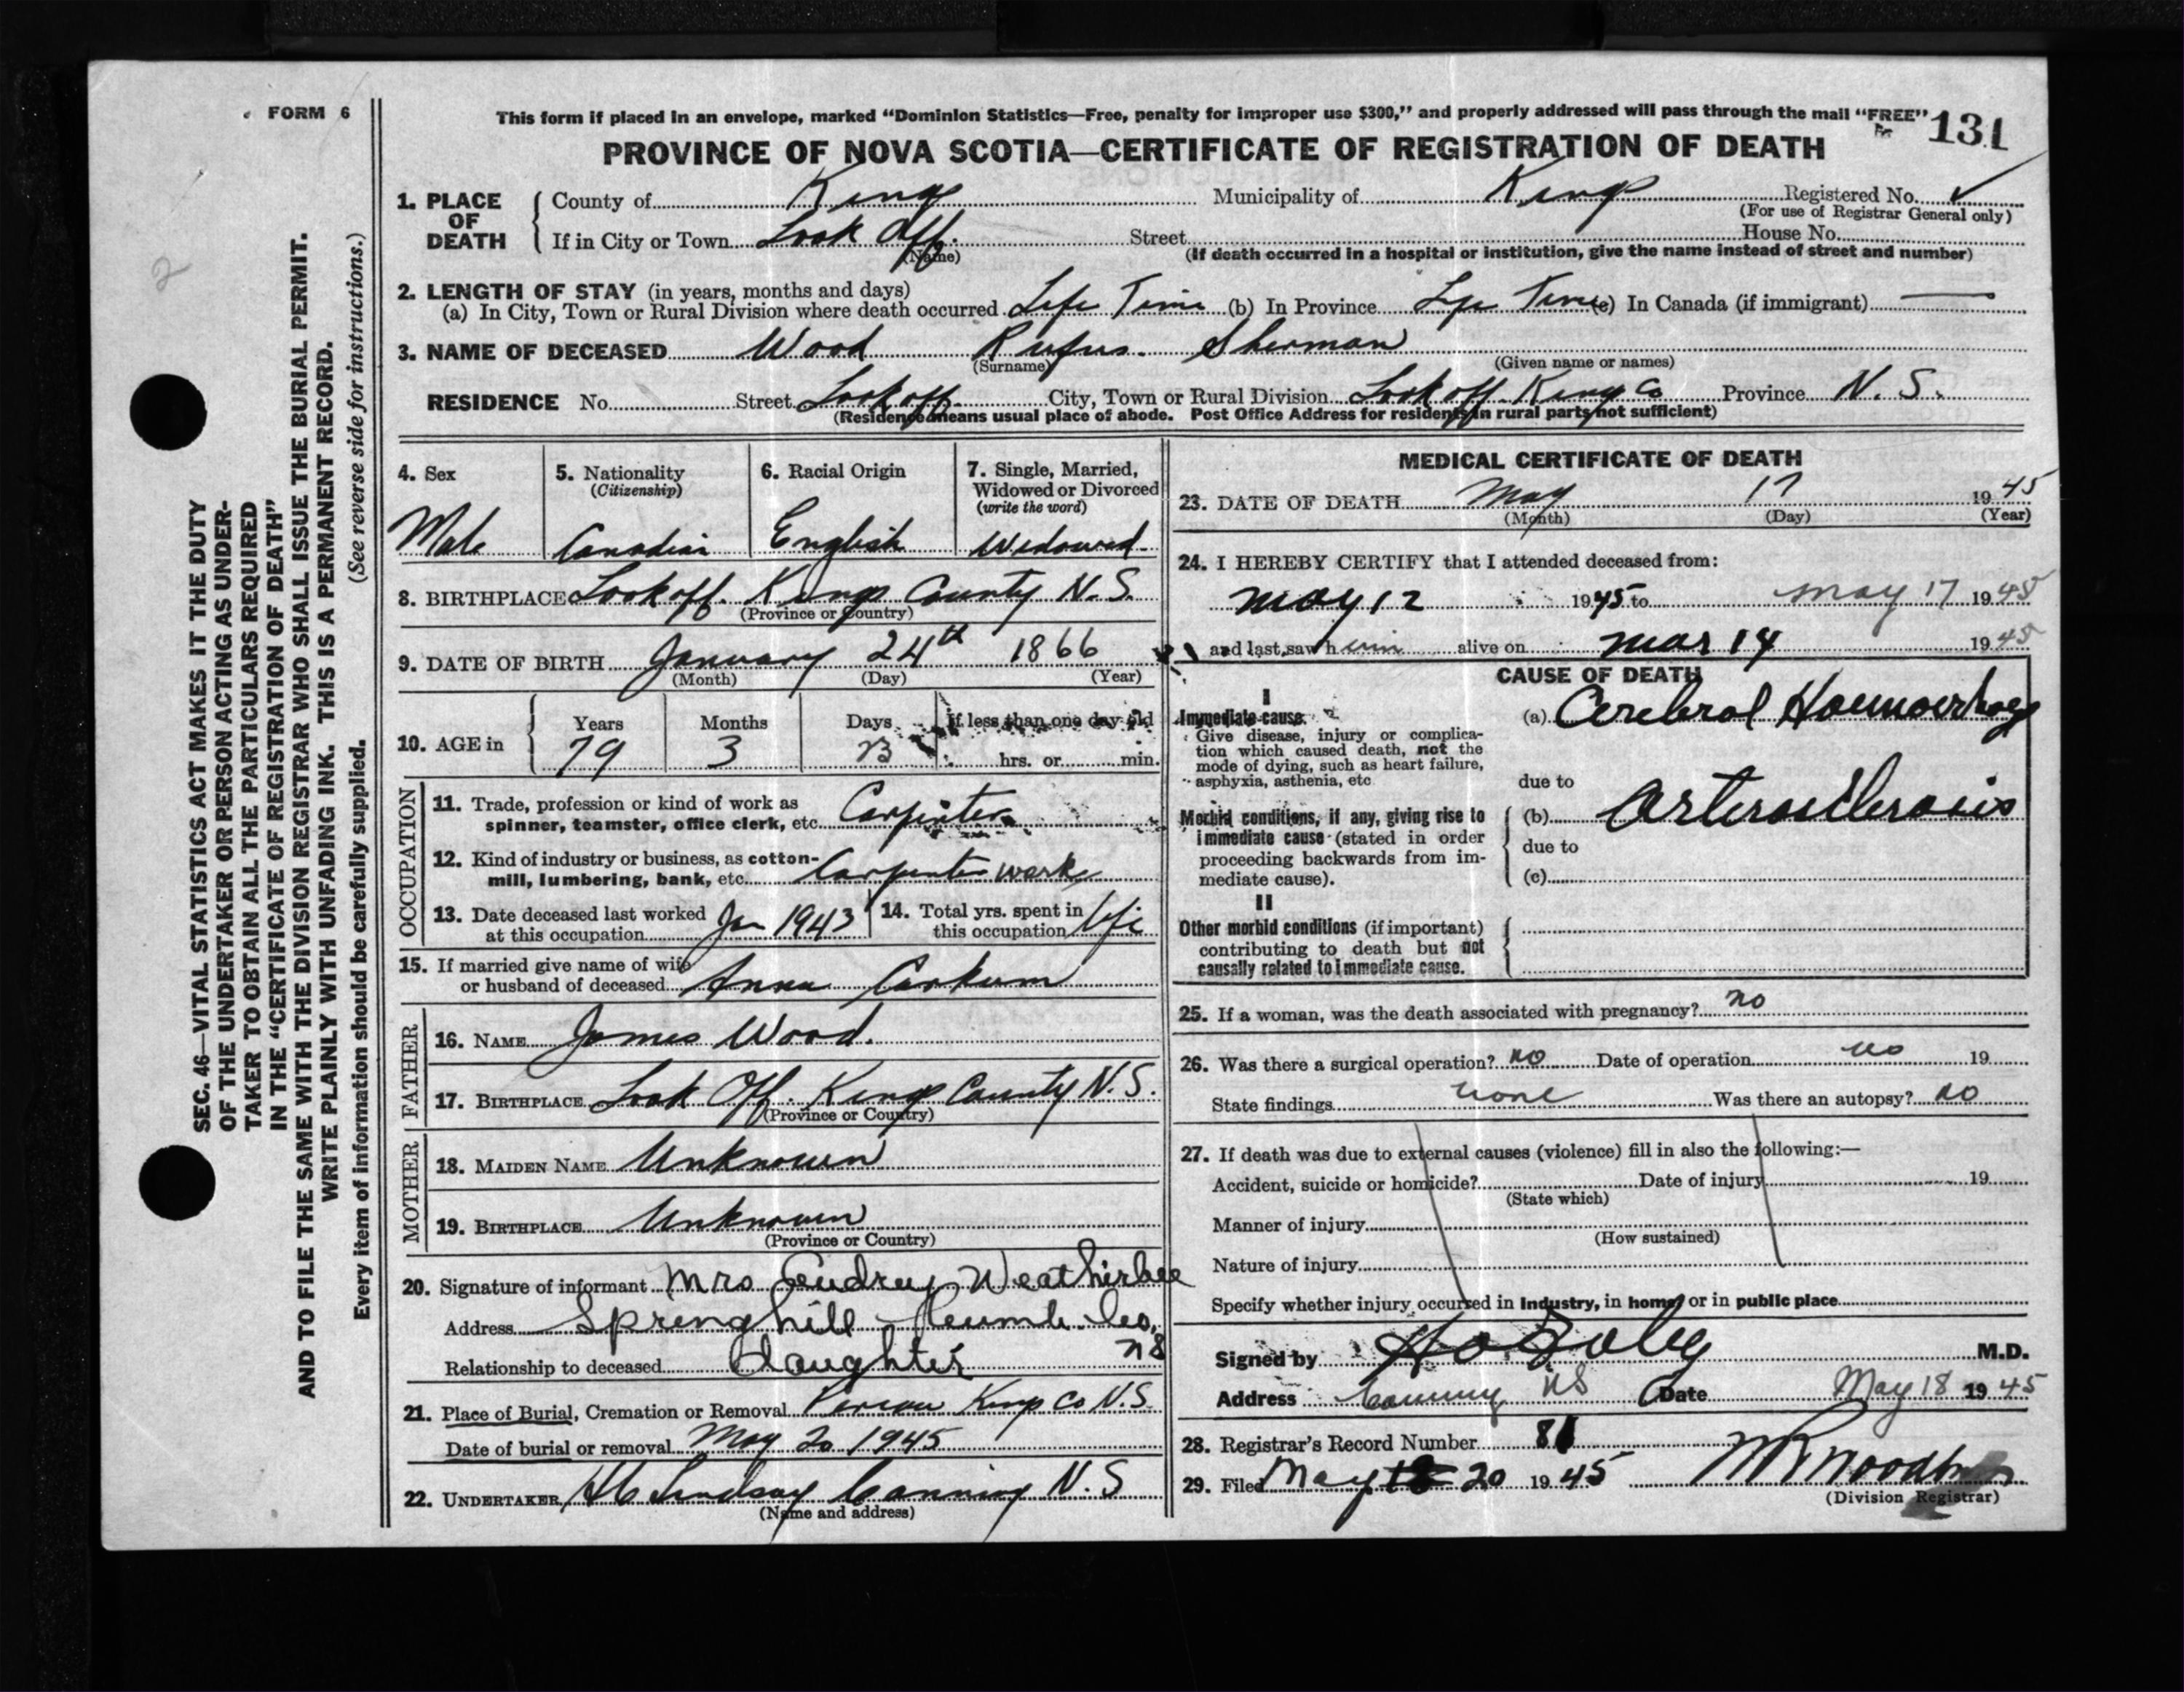 FORM 6
This form if placed in an envelope, marked "Dominion Statistics—Free, penalty for improper use $300," and properly addressed will pass through the mail "FREE"
131
PROVINCE OF NOVA SCOTIA—CERTIFICATE OF REGISTRATION OF DEATH
1. PLACE OF DEATH County of Kings Municipality of Kings Registered No. ✓
(For use of Registrar General only)
If in City or Town Look Off. Street House No.
(Name) (If death occurred in a hospital or institution, give the name instead of street and number)
2. LENGTH OF STAY (in years, months and days)
(a) In City, Town or Rural Division where death occurred Life Time (b) In Province Life Time (c) In Canada (if immigrant) —
3. NAME OF DECEASED Wood Rufus. Sherman
(Surname) (Given name or names)
RESIDENCE No. Street Lookoff. City, Town or Rural Division Lookoff. Kings Co Province N. S.
(Residence means usual place of abode. Post Office Address for residents in rural parts not sufficient)
4. Sex Male
5. Nationality (Citizenship) Canadian
6. Racial Origin English
7. Single, Married, Widowed or Divorced (write the word) Widowed
8. BIRTHPLACE Lookoff. Kings County N. S.
(Province or Country)
9. DATE OF BIRTH January 24th 1866
(Month) (Day) (Year)
10. AGE in Years Months Days If less than one day old
79 3 23 hrs. or min.
OCCUPATION
11. Trade, profession or kind of work as spinner, teamster, office clerk, etc. Carpenter
12. Kind of industry or business, as cotton-mill, lumbering, bank, etc. Carpenter work
13. Date deceased last worked at this occupation Jan 1943
14. Total yrs. spent in this occupation life
15. If married give name of wife or husband of deceased Anna Corkum
FATHER
16. NAME James Wood.
17. BIRTHPLACE Look Off. Kings County N. S.
(Province or Country)
MOTHER
18. MAIDEN NAME Unknown
19. BIRTHPLACE Unknown
(Province or Country)
20. Signature of informant Mrs Weatherbee
Address Springhill Cumb. Co. NS
Relationship to deceased Daughter
21. Place of Burial, Cremation or Removal Kings Co N.S.
Date of burial or removal May 20 1945
22. UNDERTAKER Lindsay Canning N. S
(Name and address)
MEDICAL CERTIFICATE OF DEATH
23. DATE OF DEATH May 17 1945
(Month) (Day) (Year)
24. I HEREBY CERTIFY that I attended deceased from:
May 12 1945 to May 17 1945
and last saw him alive on Mar 14 1945
CAUSE OF DEATH
I
Immediate cause.
Give disease, injury or complication which caused death, not the mode of dying, such as heart failure, asphyxia, asthenia, etc
(a) Cerebral
due to
Morbid conditions, if any, giving rise to immediate cause (stated in order proceeding backwards from immediate cause).
(b) Arteriosclerosis
due to
(c)
II
Other morbid conditions (if important) contributing to death but not causally related to immediate cause.
25. If a woman, was the death associated with pregnancy? no
26. Was there a surgical operation? no Date of operation no 19
State findings none Was there an autopsy? no
27. If death was due to external causes (violence) fill in also the following:—
Accident, suicide or homicide? Date of injury 19
(State which)
Manner of injury
(How sustained)
Nature of injury
Specify whether injury occurred in Industry, in home, or in public place
Signed by M.D.
Address Canning NS Date May 18 1945
28. Registrar's Record Number 81
29. Filed May 20 1945
(Division Registrar)
SEC. 46—VITAL STATISTICS ACT MAKES IT THE DUTY
OF THE UNDERTAKER OR PERSON ACTING AS UNDER-
TAKER TO OBTAIN ALL THE PARTICULARS REQUIRED
IN THE "CERTIFICATE OF REGISTRATION OF DEATH"
AND TO FILE THE SAME WITH THE DIVISION REGISTRAR WHO SHALL ISSUE THE BURIAL PERMIT.
WRITE PLAINLY WITH UNFADING INK. THIS IS A PERMANENT RECORD.
Every item of information should be carefully supplied. (See reverse side for instructions.)
2